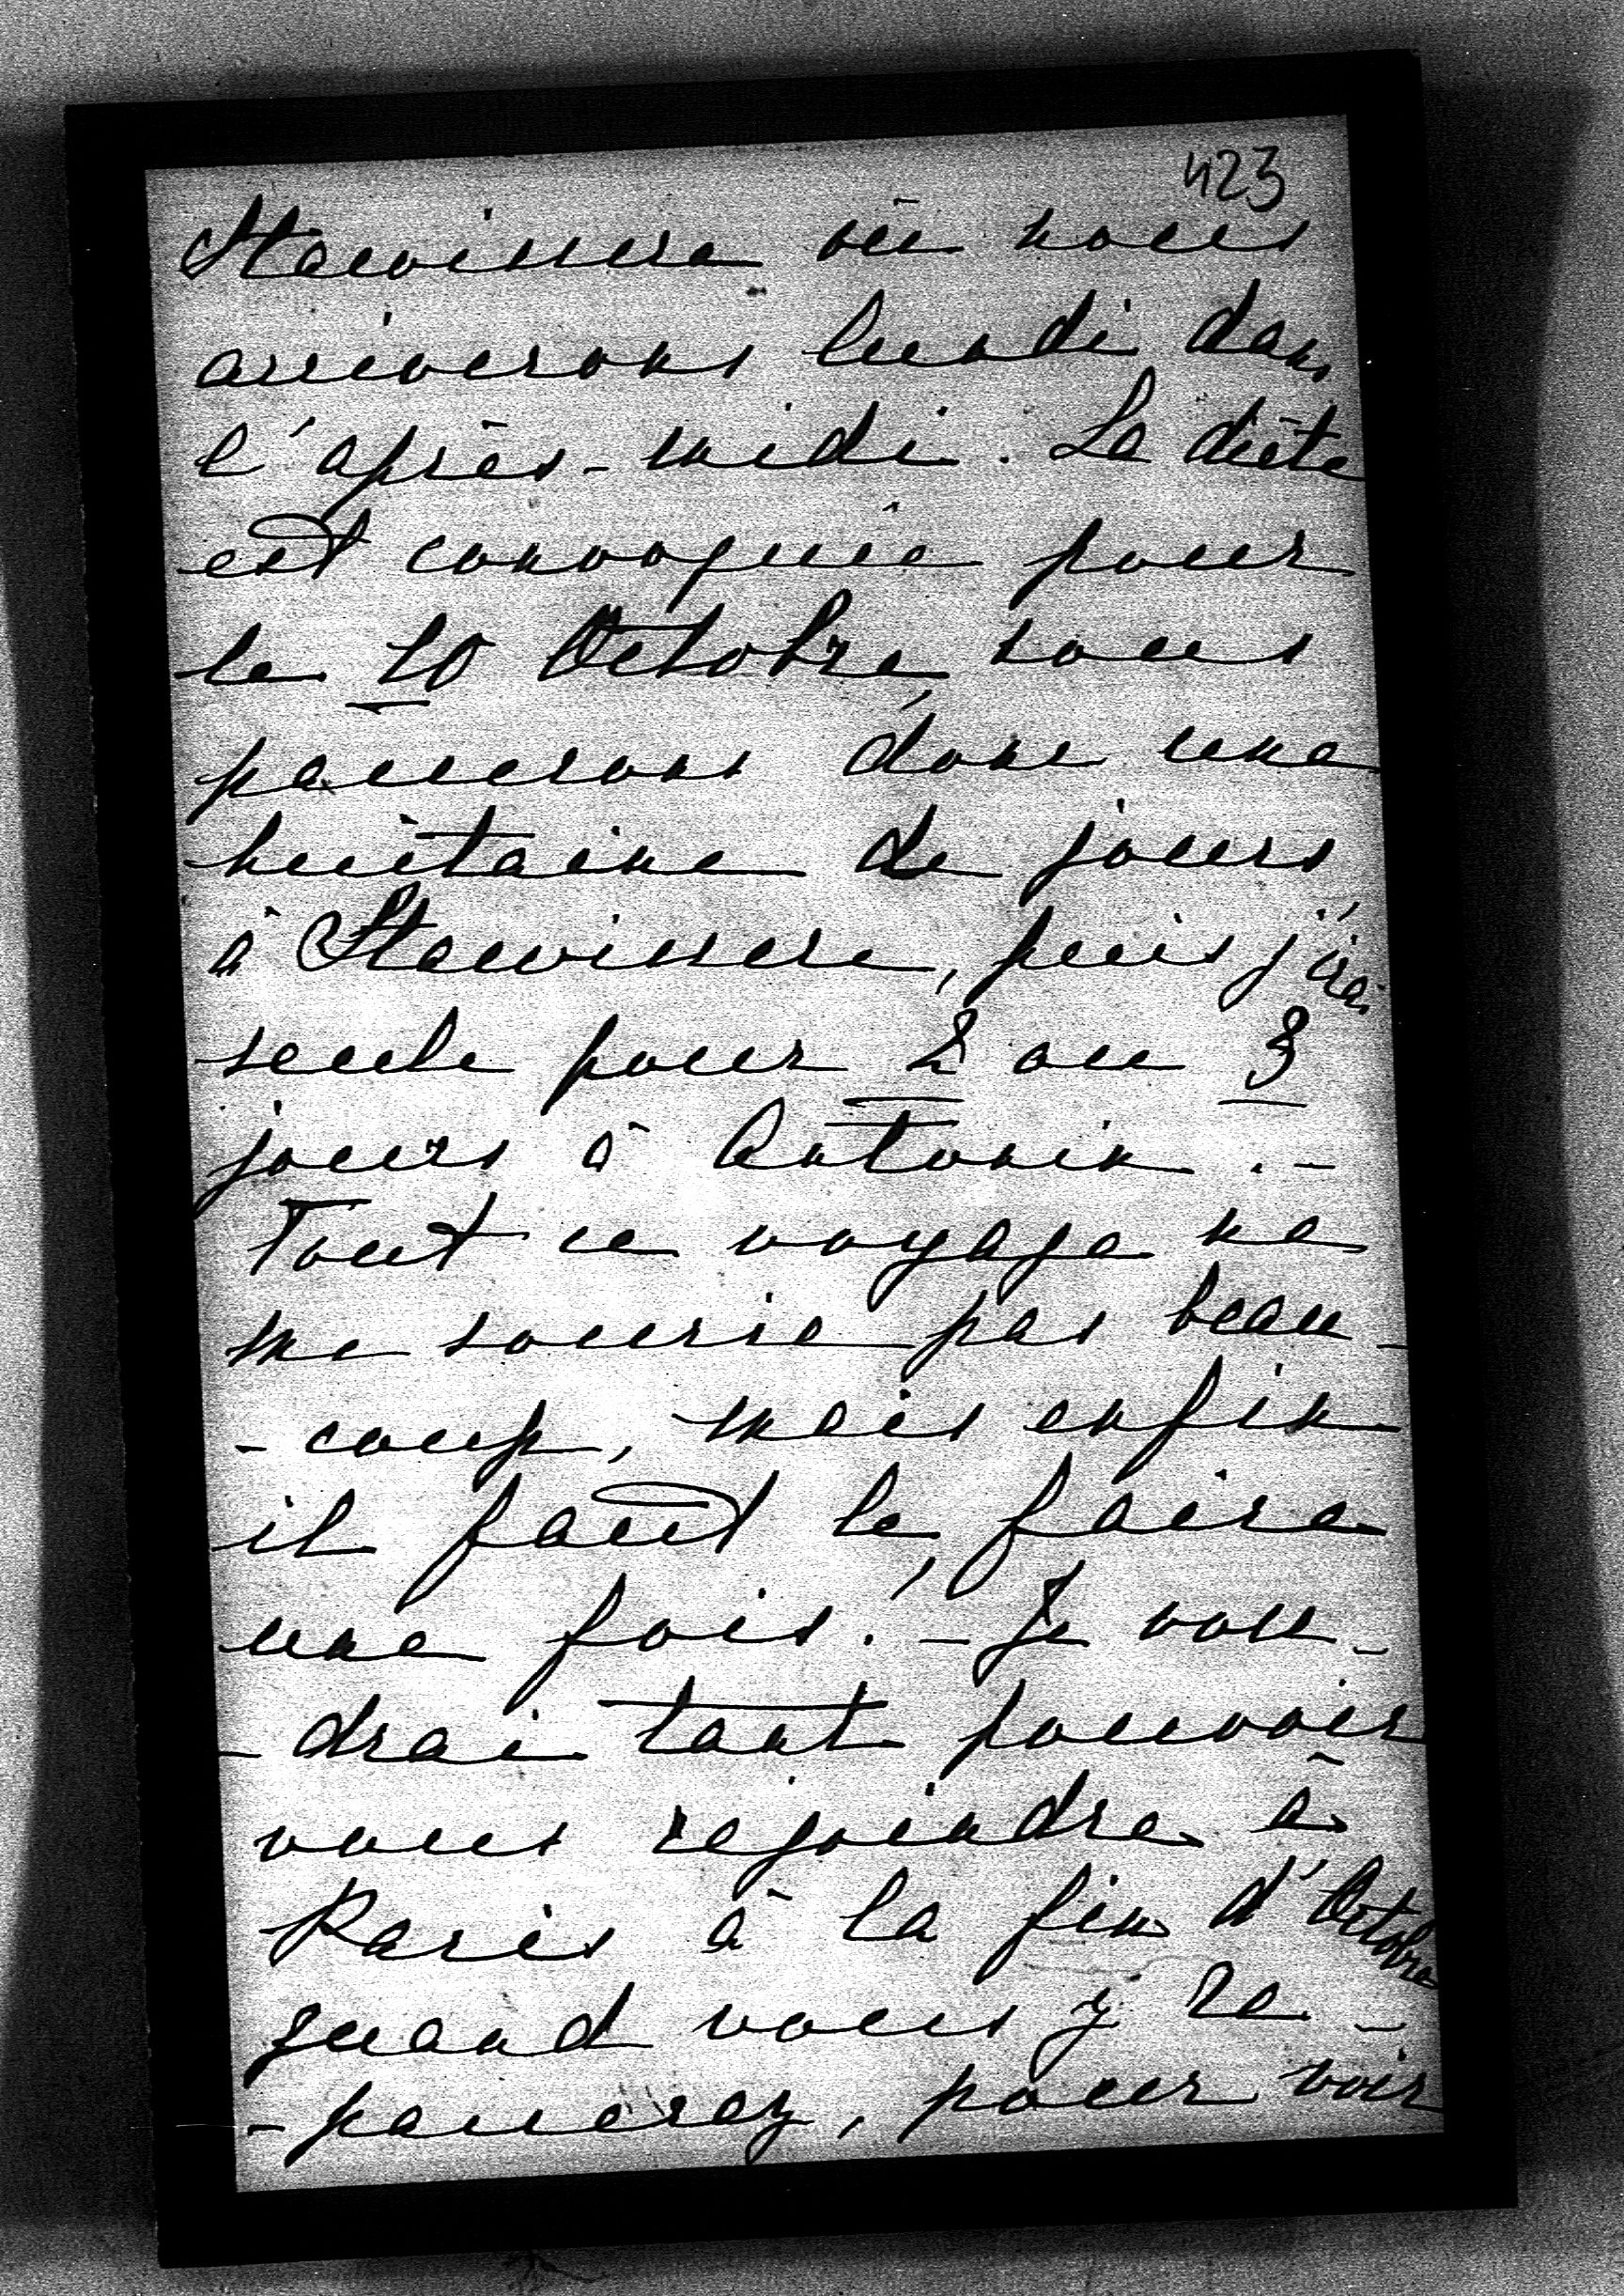 423
Stawiszcze où nous
arriverons lundi dans
l'après-midi. La diète
est convoquée pour
le 10 Octobre, nous
passerons donc une
huitaine de jours
à Stawiszcze, puis j'irai
seule pour 2 ou 3
jours à Antonin.-
Tout ce voyage ne
me sourie pas beau-
-coup, mais enfin
il faut le, faire
une fois! - Je vou-
-drai tant pouvoir
vous rejoindre à
Paris à la fin d'Octobre
quand vous y re-
-passerez, pour voir